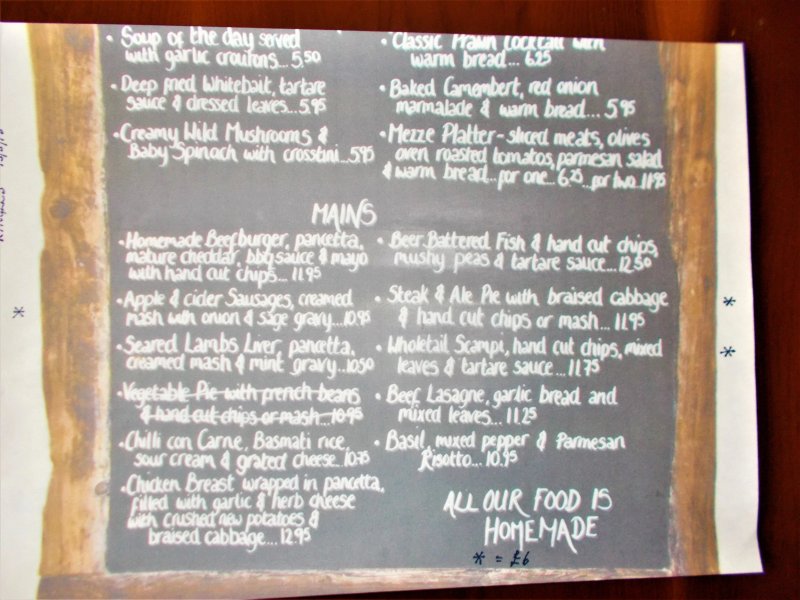 • Soup of the day served
with garlic croutons...5.50
• Deep fried Whitebait, tartare
sauce & dressed leaves...5.95
• Creamy Wild Mushrooms &
Baby Spinach with crosstini...5.95
• Classic Prawn Cocktail with
warm bread... 6.25
• Baked Camembert, red onion
marmalade & warm bread... 5.95
• Mezze Platter - sliced meats, olives
oven roasted tomatos, parmesan salad
& warm bread...for one...6.25...for two..11.95
MAINS
• Homemade Beefburger, pancetta,
mature cheddar, bbq sauce & mayo
with hand cut chips... 11.95
• Apple & cider Sausages, creamed
mash with onion & sage gravy...10.95
• Seared Lambs Liver, pancetta,
creamed mash & mint gravy...10.50
• Vegetable Pie with french beans
& hand cut chips or mash...10.95
• Chilli con Carne, Basmati rice,
sour cream & grated cheese...10.75
• Chicken Breast wrapped in pancetta,
filled with garlic & herb cheese
with crushed new potatoes &
braised cabbage... 12.95
• Beer Battered Fish & hand cut chips,
mushy peas & tartare sauce...12.50
• Steak & Ale Pie with braised cabbage
& hand cut chips or mash... 11.95
• Wholetail Scampi, hand cut chips, mixed
leaves & tartare sauce...11.75
• Beef Lasagne, garlic bread and
mixed leaves... 11.25
• Basil, mixed pepper & Parmesan
Risotto... 10.95
ALL OUR FOOD IS
HOMEMADE
* = £6
*
*
*